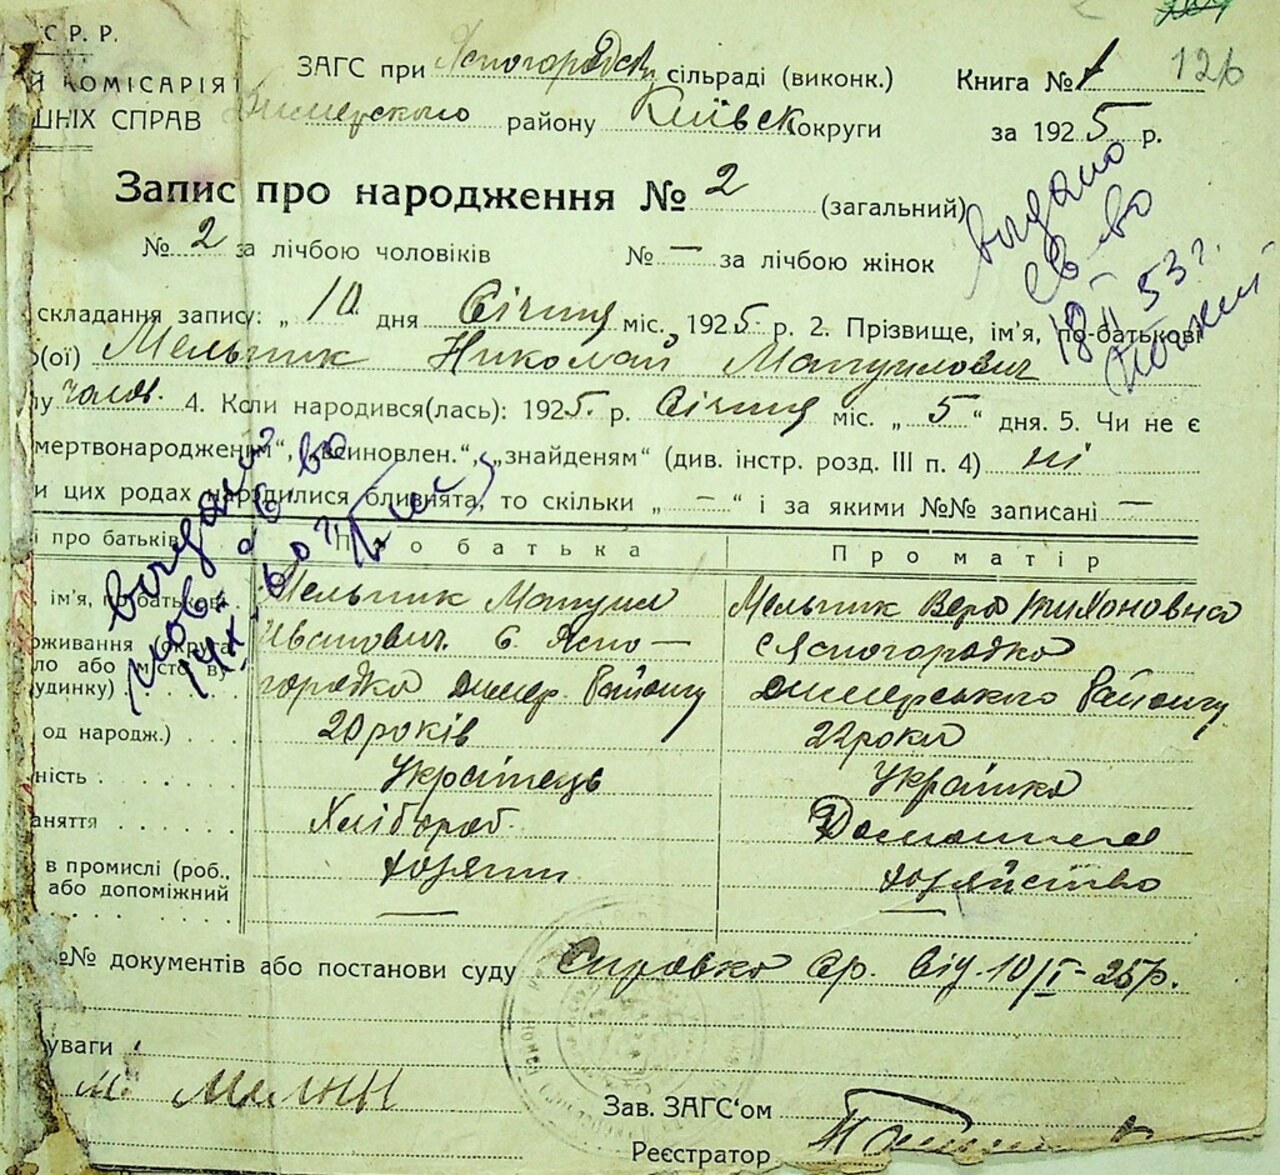 С Р. Р.
Й КОМІСАРІЯ
ШНІХ СПРАВ
ЗАГС при Ясногородськ сільраді (виконк.) Книга № 1 126
Димерского району Київськ округи за 1925 р.
Запис про народження № 2 (загальний)
№ 2 за лічбою чоловіків № — за лічбою жінок
видано
св-во
18/II 53 г.
складання запису: „ 10 дня Січня міс. 1925 р. 2. Прізвище, ім'я, по-батькові
о(ої) Мельник Николай Мануилович
лу чолов. 4. Коли народився(лась): 1925. р. Січня міс. „ 5 “ дня. 5. Чи не є
мертвонародженям“, „всиновлен.“, „знайденям“ (див. інстр. розд. III п. 4) ні
и цих родах народилися близнята, то скільки „ — “ і за якими №№ записані —
і про батьків Про батька Про матір
, ім'я, по батькові Мельник Мануил Мельник Вера Тихоновна
оживання (округа Иванович. с. Ясно- с Ясногородка
ло або місто, в
удинку) городка Димер. Району Димерського Району
од народж.) 20 років 22 роки
ність Українець Українка
аняття Хлібороб. Домашнее
в промислі (роб., хозяин хозяйство
або допоміжний — —
№№ документів або постанови суду Справка ср. від 10/I-25р.
уваги
Зав. ЗАГС‘ом
Реєстратор